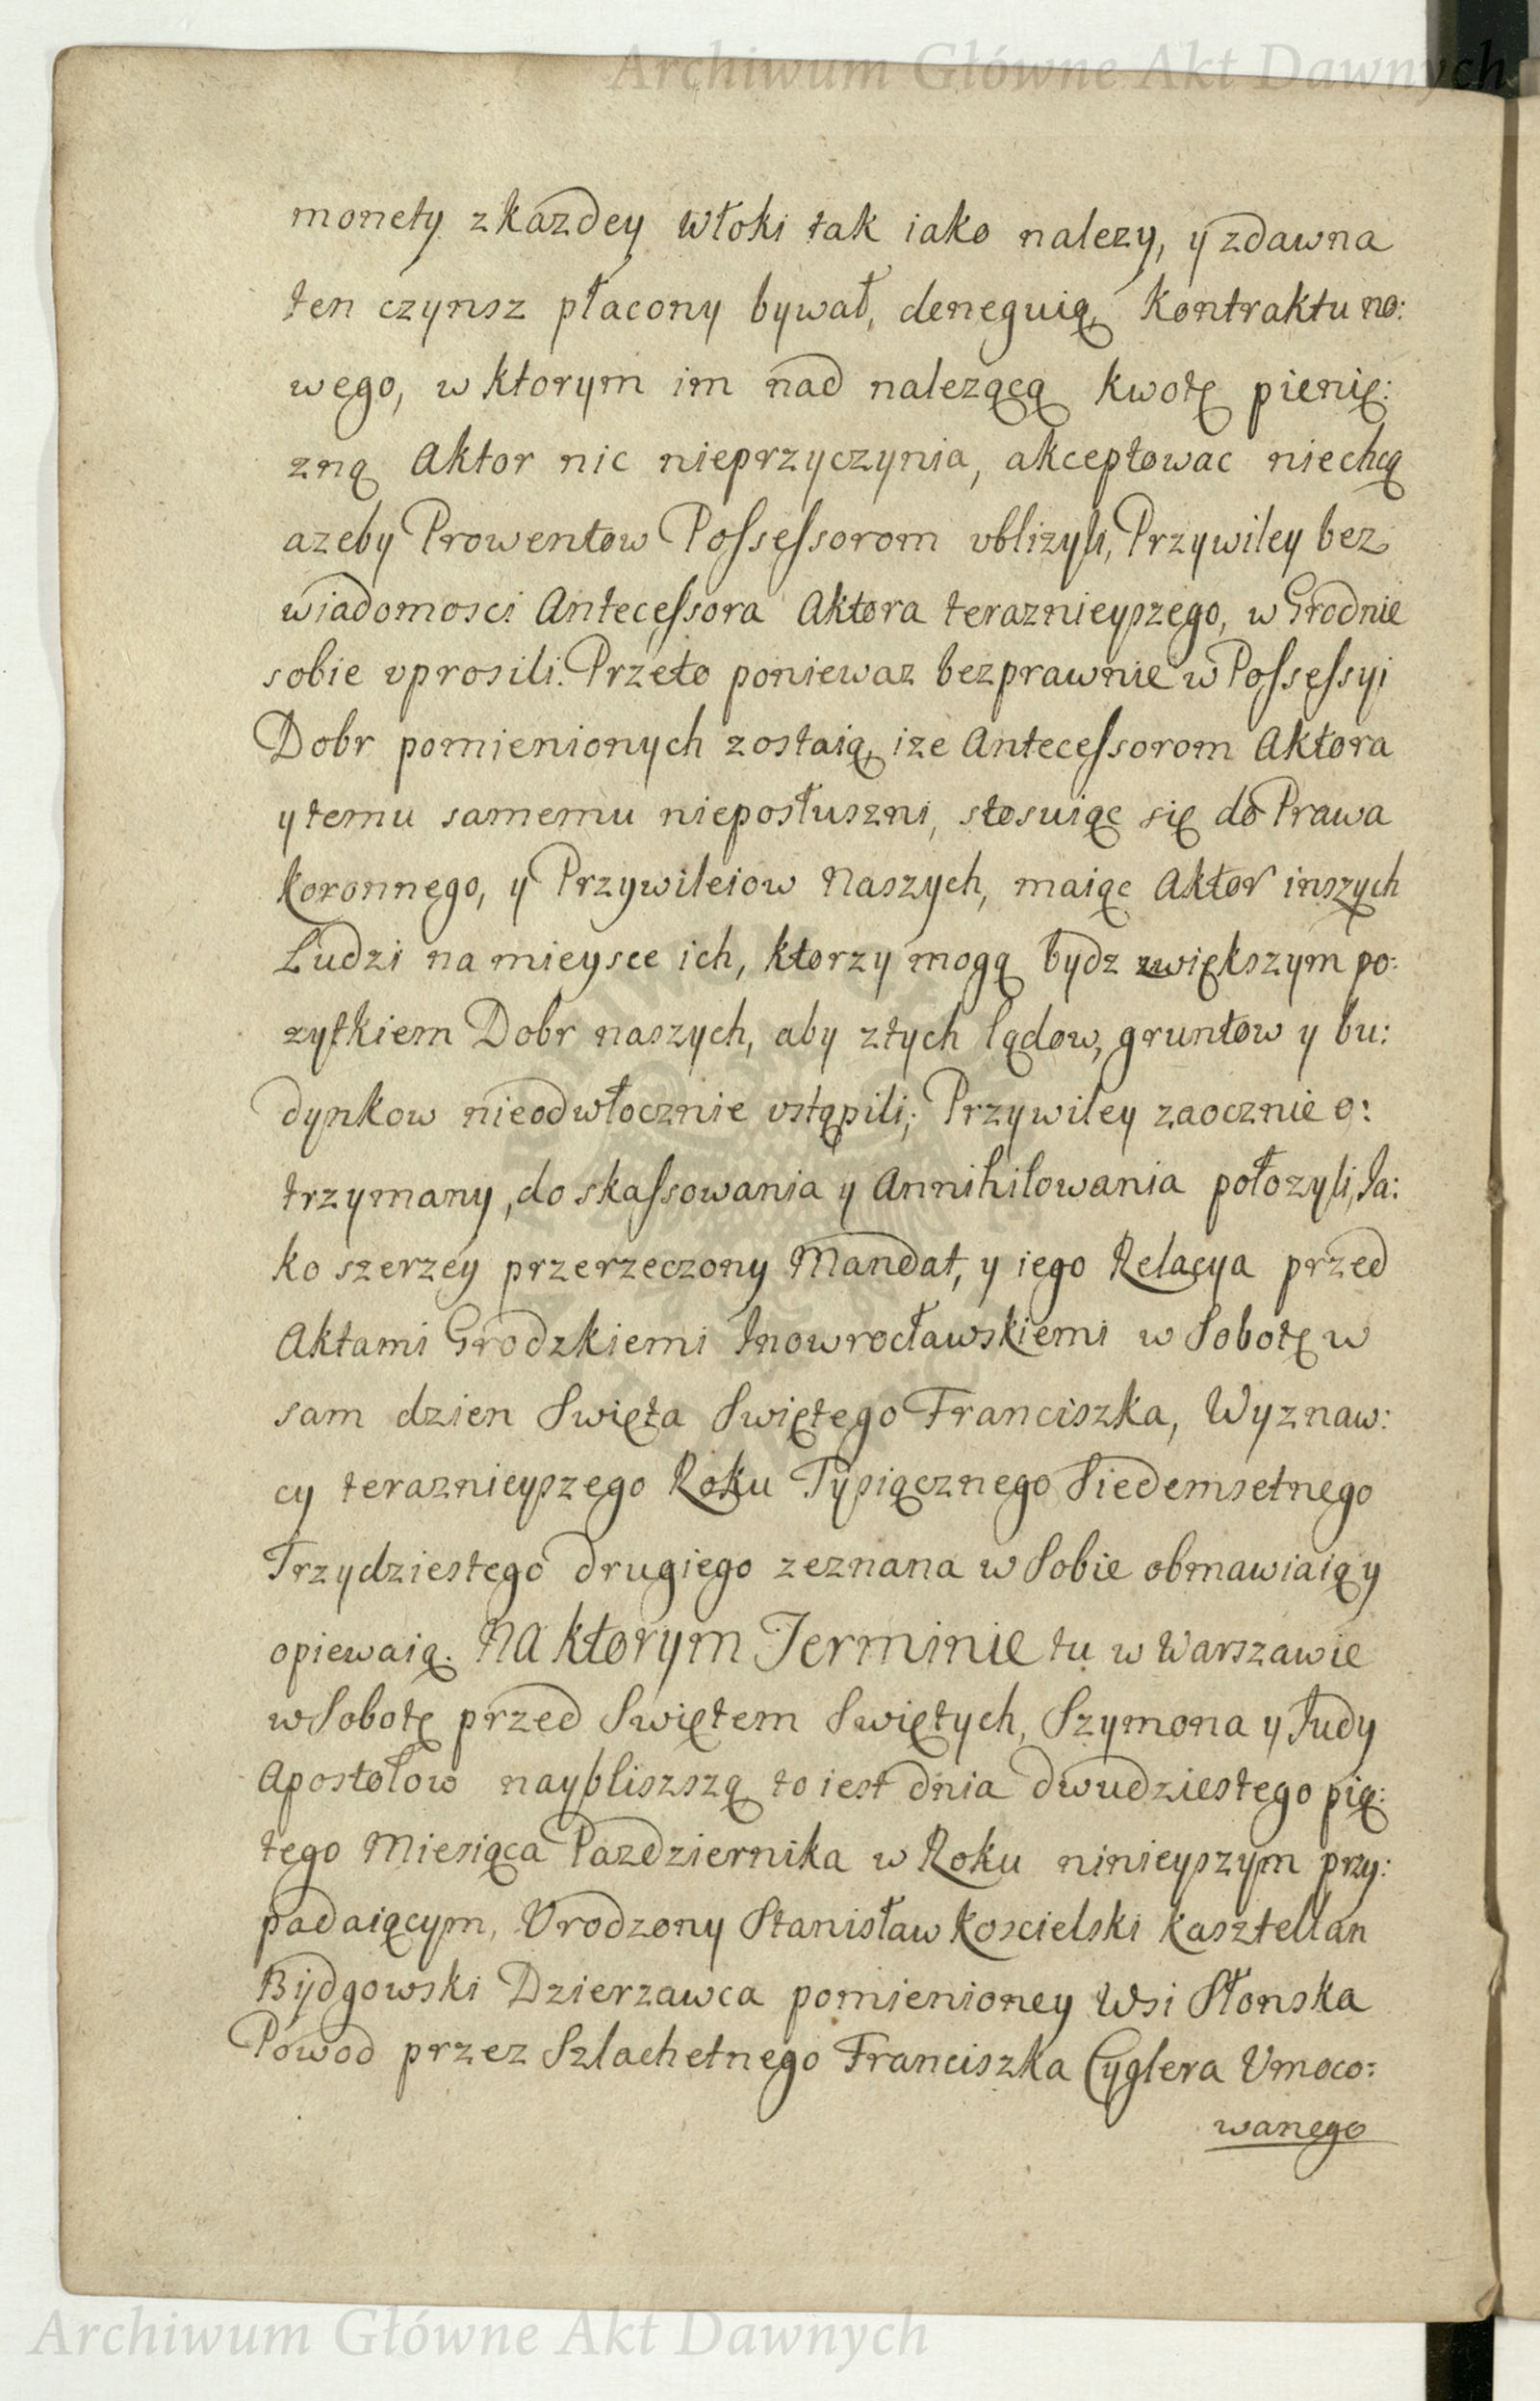 Archiwum Główne Akt Dawnych
monety z kazdey włoki tak iako nalezy, y zdawna
ten czynsz płacony bywał, deneguią, Kontraktu no:
wego, w ktorym im nad nalezącą kwotę pienię:
zną Aktor nic nieprzyczynia, akceptowac niechcą
azeby Prowentow Possessorom ubliżyli, Przywiley bez
wiadomosci Antecessora Aktora teraznieyszego, w Grodnie
sobie uprosili. Przeto poniewaz bezprawnie w Possessyi
Dobr pomienionych zostaią, ize Antecessorom Aktora
y temu samemu nieposłuszni, stosuiąc się do Prawa
koronnego, y Przywileiow Naszych, maiąc Aktor inszych
Ludzi na mieysce ich, ktorzy mogą bydz zwiększym po:
zytkiem Dobr naszych, aby ztych lądow, gruntow y bu:
dynkow nieodwłocznie ustąpili; Przywiley zaocznie o:
trzymany, do skassowania y Annihilowania połozyli, Ja:
ko szerzey przerzeczony Mandat, y iego Relacya przed
Aktami Grodzkiemi Jnowrocławskiemi w Sobotę w
sam dzien Swięta Swiętego Franciszka, Wyznaw:
cy teraznieyszego Roku Tysiącznego Siedemsetnego
Trzydziestego drugiego zeznana w Sobie obmawiaią y
opiewaią. Na ktorym Terminie tu w Warszawie
w Sobotę przed Swiętem Swiętych, Szymona y Judy
Apostołow naybliszszą to iest dnia dwudziestego pią:
tego Miesiąca Pazdziernika w Roku ninieyszym przy:
padaiącym, Urodzony Stanisław Koscielski Kasztellan
Bydgowski Dzierzawca pomienioney Wsi Słonska
Powod przez Szlachetnego Franciszka Cyglera Umoco:
wanego
Archiwum Główne Akt Dawnych